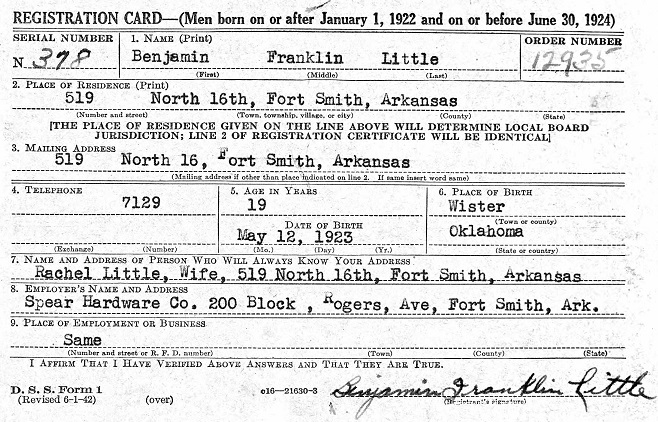 REGISTRATION CARD—(Men born on or after January 1, 1922 and on or before June 30, 1924)
SERIAL NUMBER 1. NAME (Print) ORDER NUMBER
N 378 Benjamin Franklin Little 12935
(First) (Middle) (Last)
2. PLACE OF RESIDENCE (Print)
519 North 16th, Fort Smith, Arkansas
(Number and street) (Town, township, village, or city) (County) (State)
[THE PLACE OF RESIDENCE GIVEN ON THE LINE ABOVE WILL DETERMINE LOCAL BOARD
JURISDICTION; LINE 2 OF REGISTRATION CERTIFICATE WILL BE IDENTICAL]
3. MAILING ADDRESS
519 North 16, Fort Smith, Arkansas
(Mailing address if other than place indicated on line 2. If same insert word same)
4. TELEPHONE 5. AGE IN YEARS 6. PLACE OF BIRTH
7129 19 Wister
(Town or county)
DATE OF BIRTH
May 12, 1923 Oklahoma
(Exchange) (Number) (Mo.) (Day) (Yr.) (State or country)
7. NAME AND ADDRESS OF PERSON WHO WILL ALWAYS KNOW YOUR ADDRESS
Rachel Little, Wife, 519 North 16th, Fort Smith, Arkansas
8. EMPLOYER'S NAME AND ADDRESS
Spear Hardware Co. 200 Block , Rogers, Ave, Fort Smith, Ark.
9. PLACE OF EMPLOYMENT OR BUSINESS
Same
(Number and street or R. F. D. number) (Town) (County) (State)
I AFFIRM THAT I HAVE VERIFIED ABOVE ANSWERS AND THAT THEY ARE TRUE.
D. S. S. Form 1 c16—21630-3 Benjamin Franklin Little
(Revised 6-1-42) (over) (Registrant's signature)